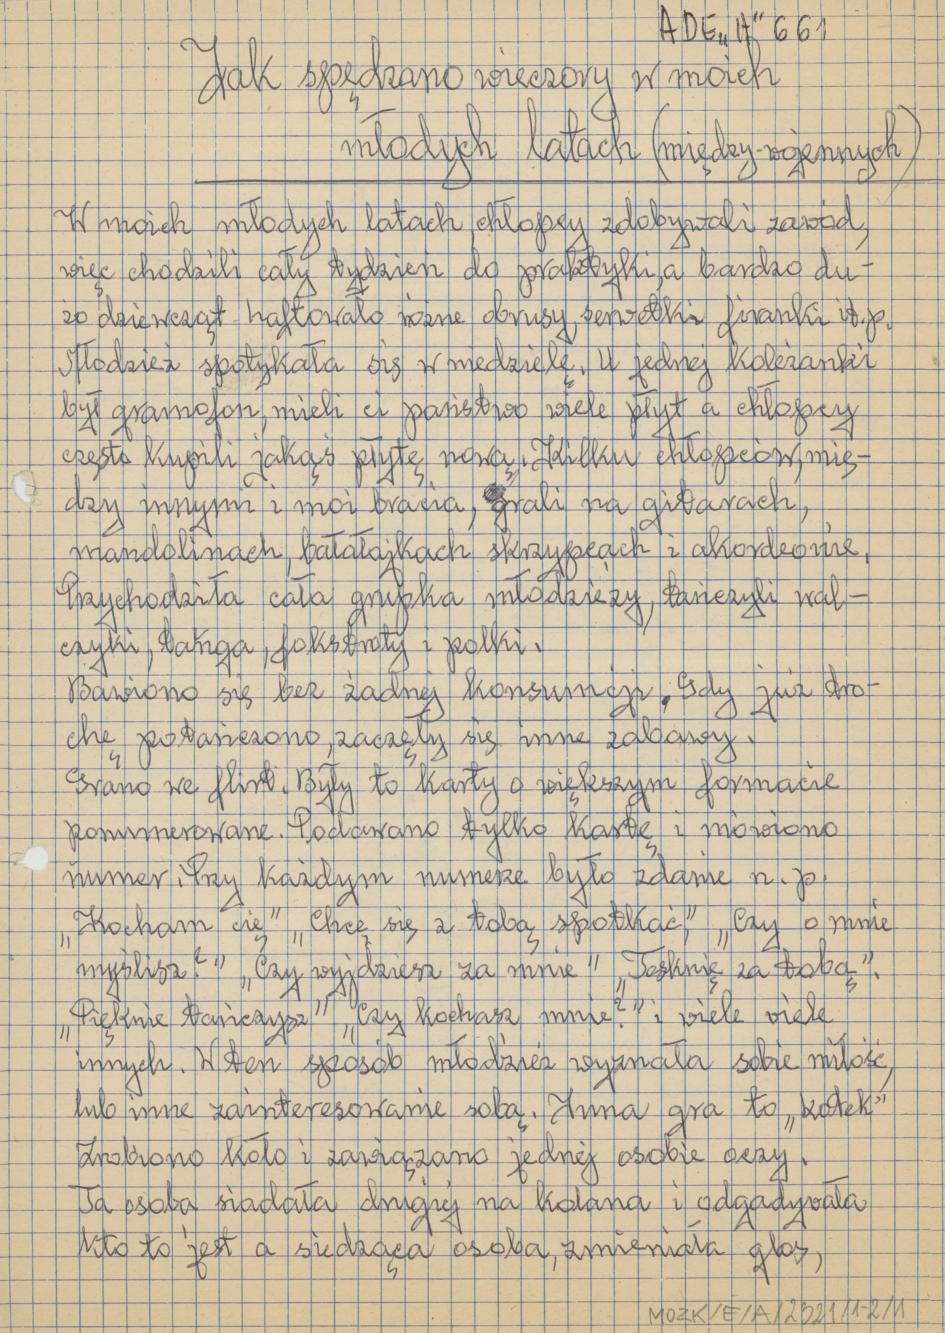 ADE„H" 661
Jak spędzano wieczory w moich
młodych latach (między-wojennych)
W moich młodych latach, chłopcy zdobywali zawód,
więc chodzili cały tydzień do praktyki, a bardzo du-
żo dziewcząt haftowało różne obrusy, serwetki firanki it.p.
Młodzież spotykała się w niedzielę. U jednej koleżanki
był gramofon, mieli ci państwo wiele płyt a chłopcy
często kupili jakąś płytę nową. Kilku chłopców, mię-
dzy innymi i moi bracia, grali na gitarach,
mandolinach, bałałajkach skrzypcach i akordeonie.
Przychodziła cała grupka młodzieży, tańczyli wal-
czyki, tanga, fokstroty i polki.
Bawiono się bez żadnej konsumcji. Gdy już tro-
chę potańczono, zaczęły się inne zabawy.
Grano we flirt. Były to karty o większym formacie
ponumerowane. Podawano tylko kartę i mówiono
numer. Przy każdym numerze było zdanie n.p.
„Kocham cię" „Chcę się z tobą spotkać", „Czy o mnie
myślisz?" „Czy wyjdziesz za mnie" „Tęsknię za tobą".
„Pięknie tańczysz" „Czy kochasz mnie?" i wiele wiele
innych. W ten sposób młodzież wyznała sobie miłość,
lub inne zainteresowanie sobą. Inna gra to „kotek"
Zrobiono koło i zawiązano jednej osobie oczy.
Ta osoba siadała drugiej na kolana i odgadywała
kto to jest a siedząca osoba, zmieniała głos,
MOZK/E/A/2321/1-2/1